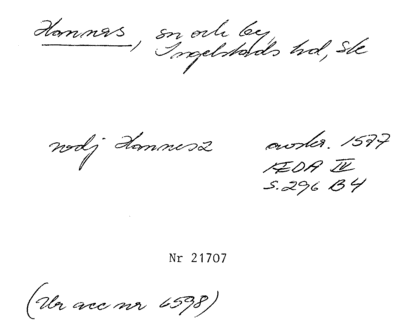 Hannas, sn och by,
Ingelstads hd, Sk
nodj Hannesz avskr. 1577
ÆDA IV
s. 296 B4
Nr 21707
(Ur acc nr 6598)